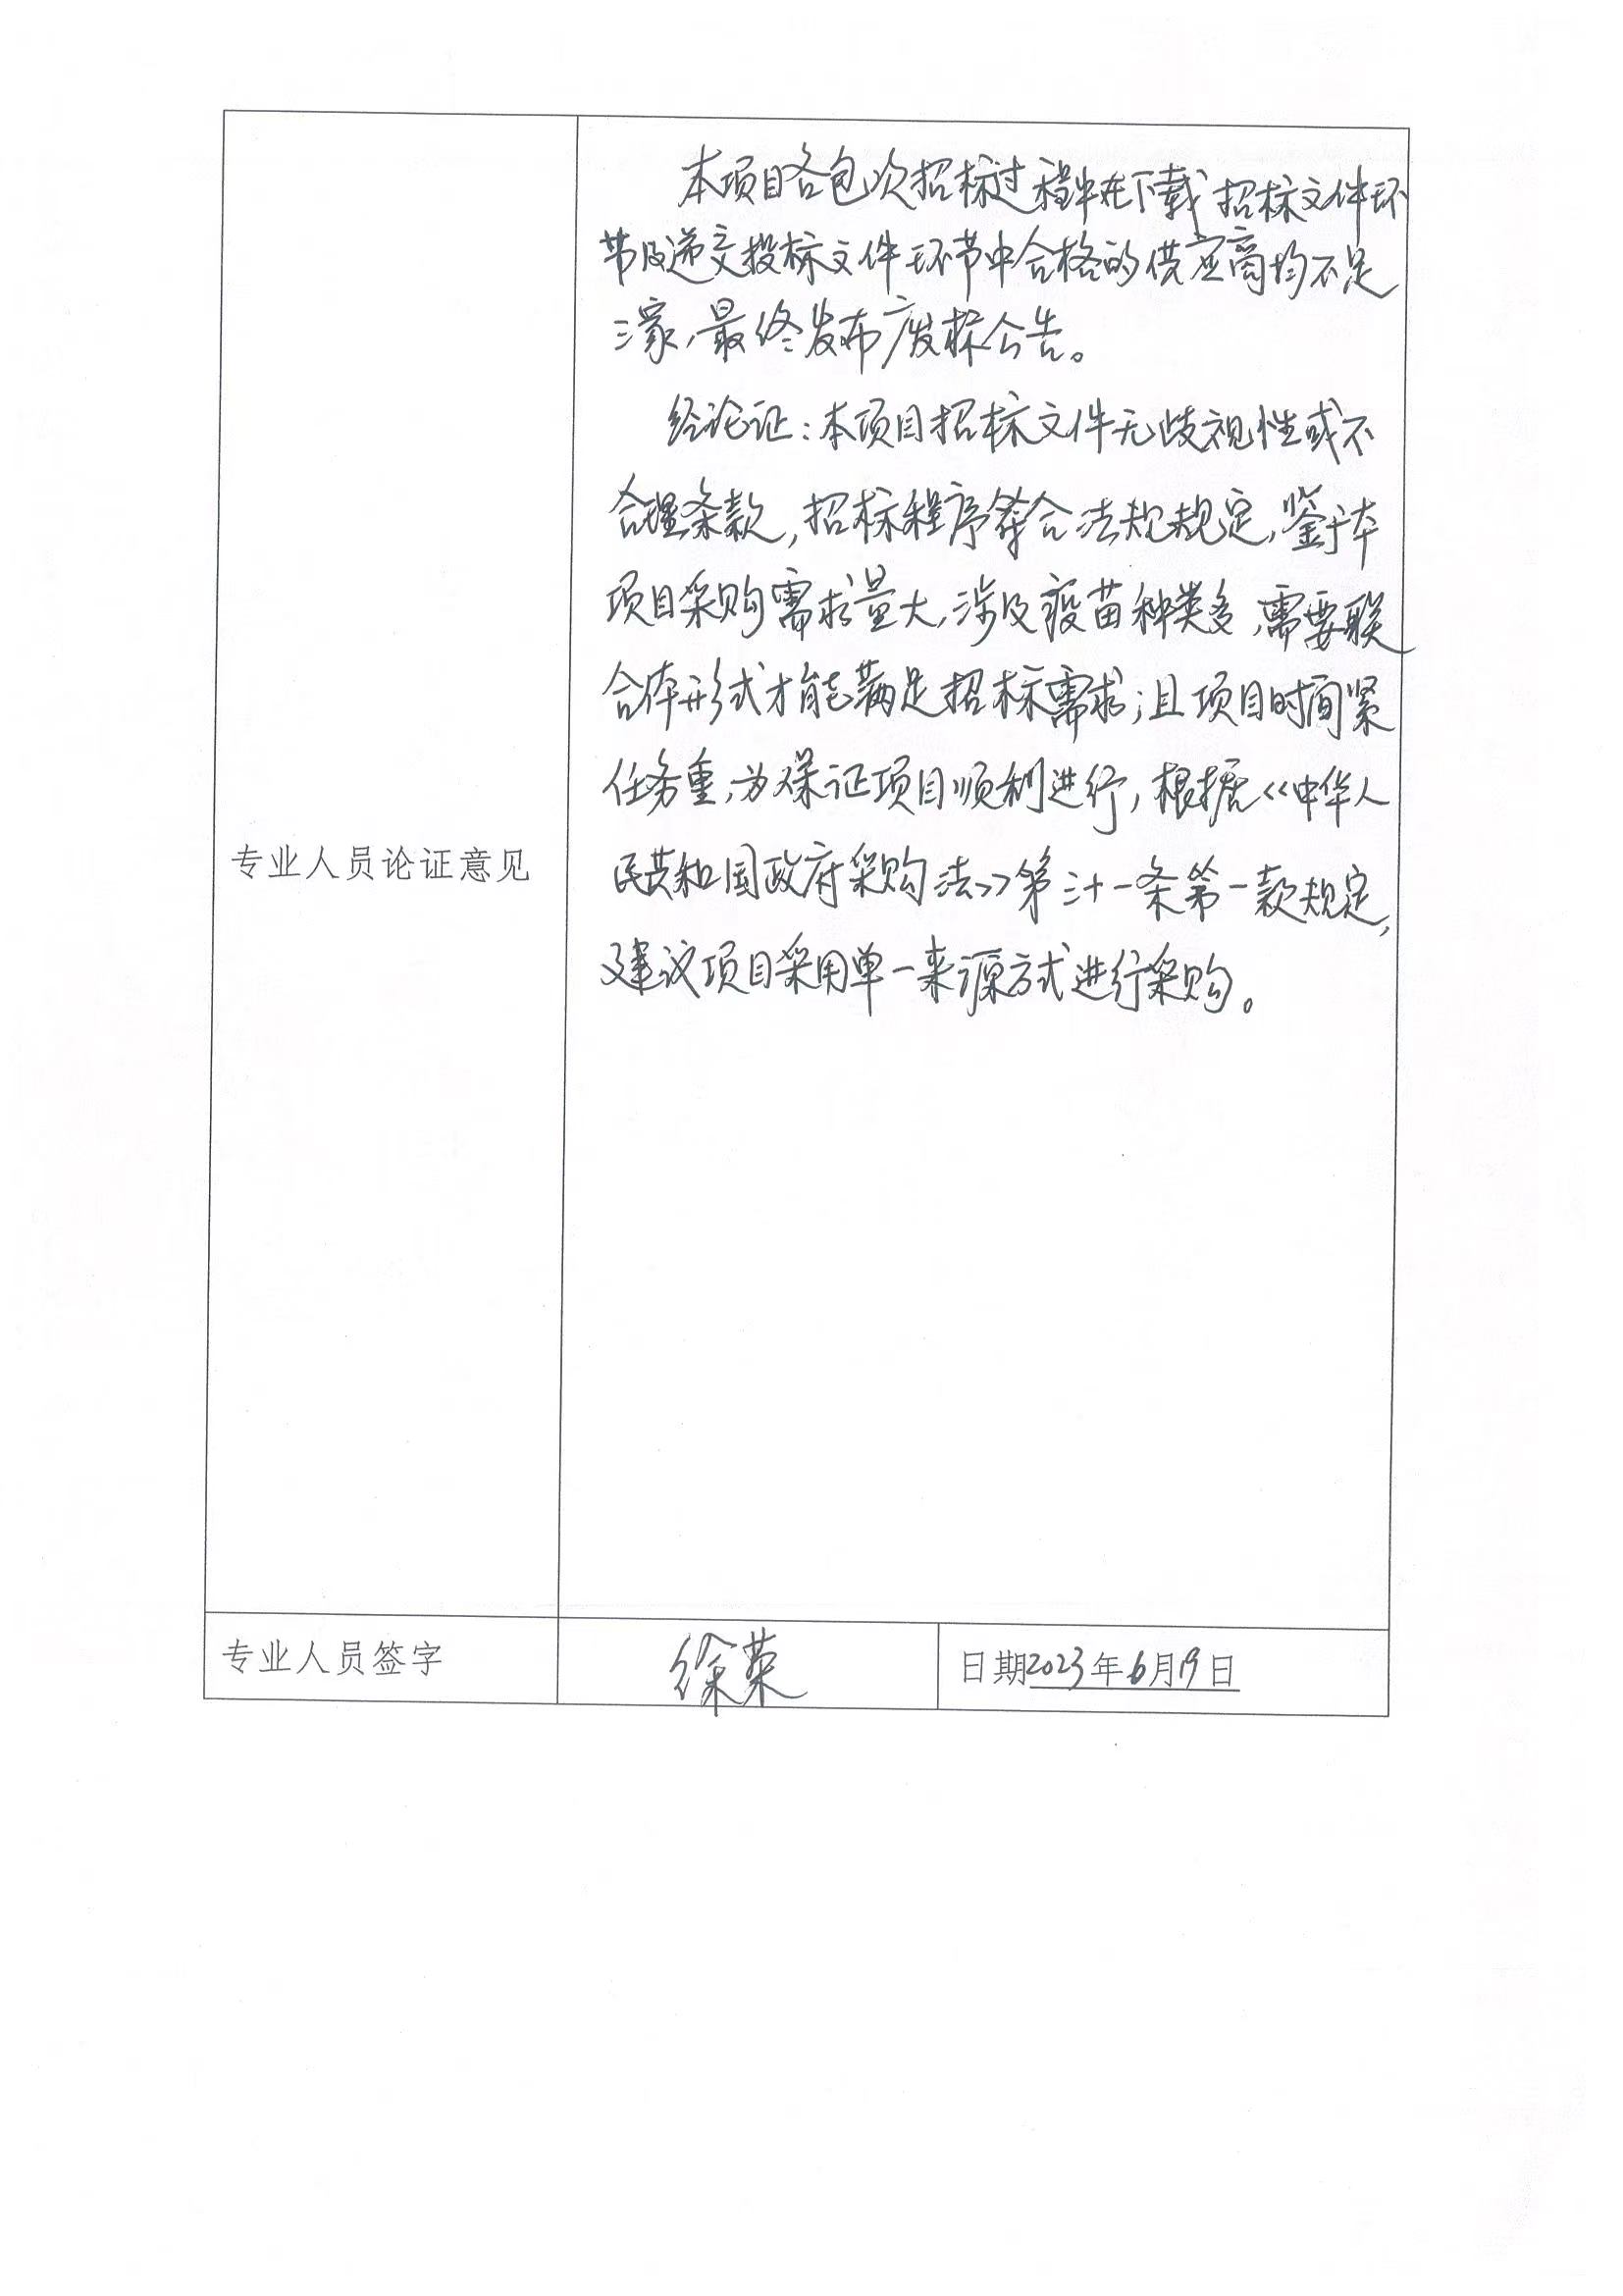 本项目各包次招标过程中在下载招标文件环
节及递交投标文件环节中合格的供应商均不足
三家，最终发布废标公告。
经论证：本项目招标文件无歧视性或不
合理条款，招标程序符合法规规定，鉴于本
项目采购需求量大，涉及疫苗种类多，需要联
合体形式才能满足招标需求；且项目时间紧
任务重，为保证项目顺利进行，根据《中华人
专业人员论证意见
民共和国政府采购法》第三十一条第一款规定，
建议项目采用单一来源方式进行采购。
专业人员签字
徐荣
日期2023年6月19日